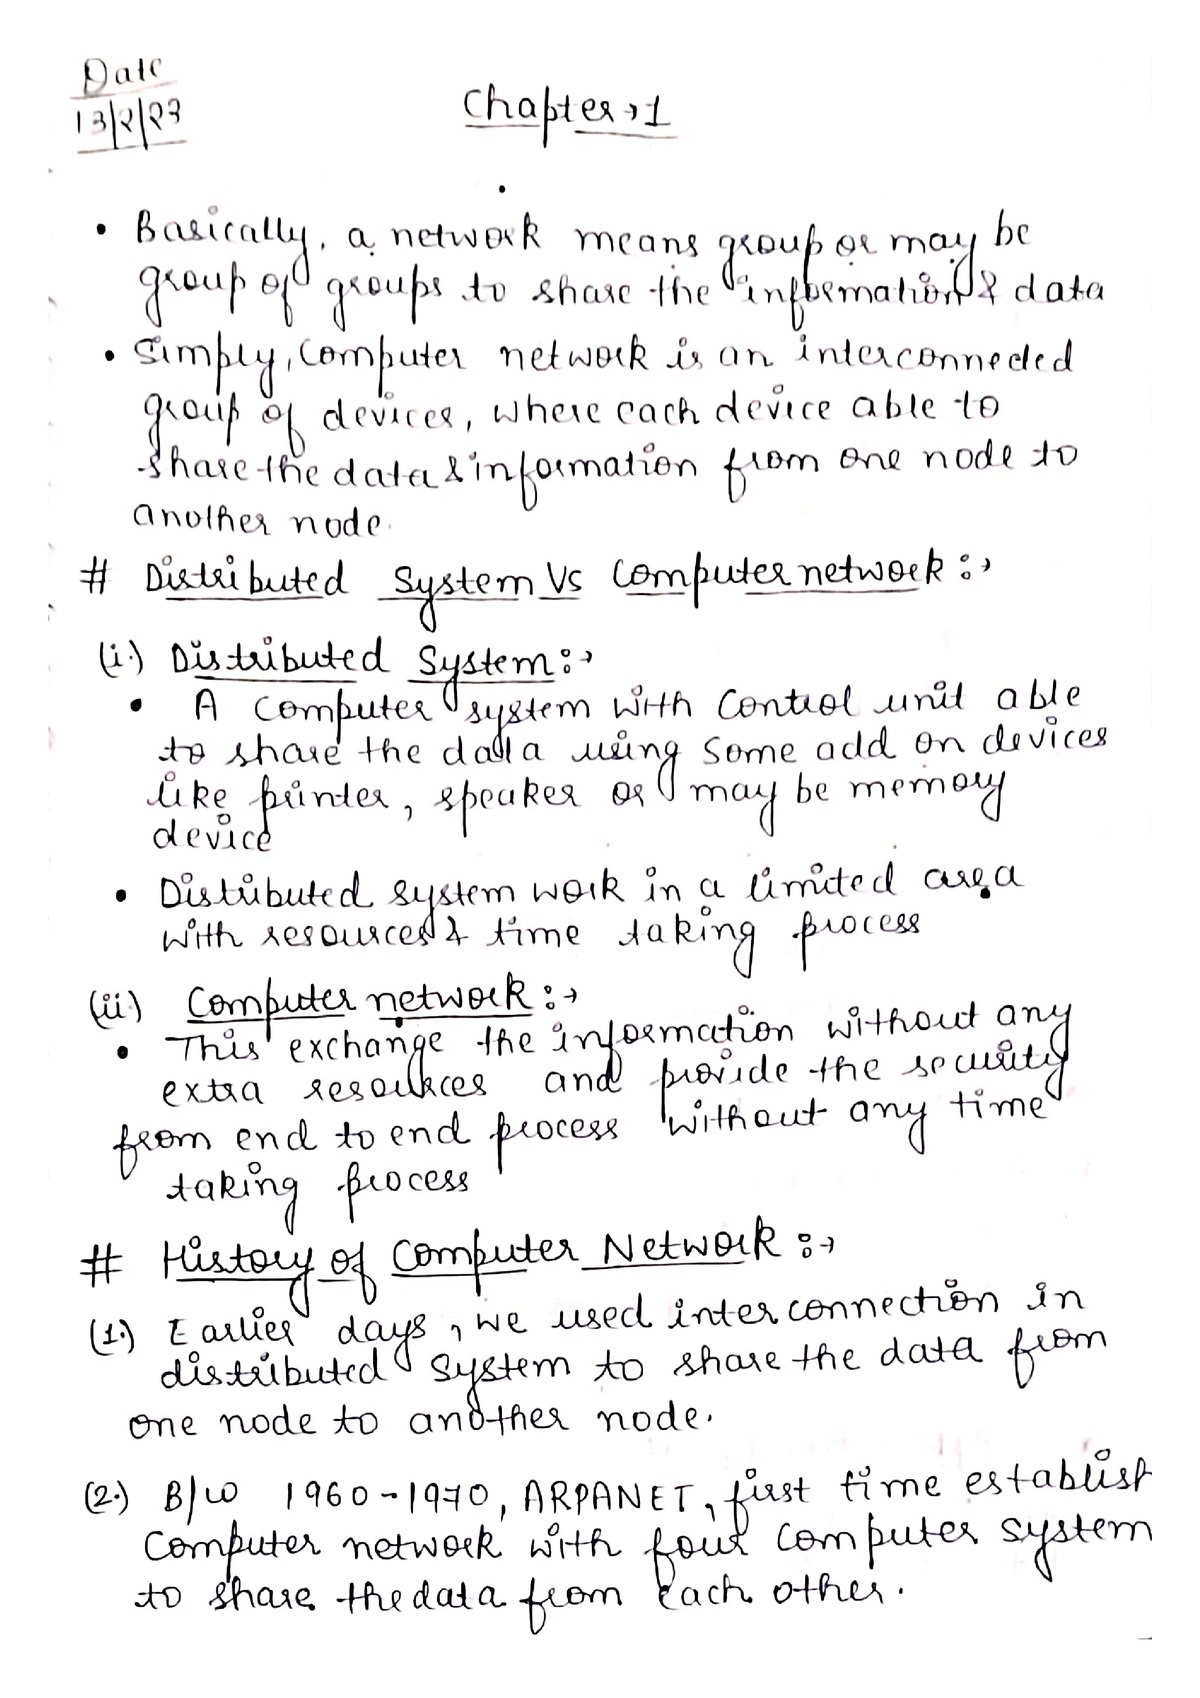 Date
13/2/23
Chapter → 1
• Basically, a network means group or may be
group of groups to share the information & data
• Simply, Computer network is an interconnected
group of devices, where each device able to
share the data & information from one node to
another node.
# Distributed System Vs Computer network :→
(i.) Distributed System :→
• A Computer system with Control unit able
to share the data using Some add on devices
like printer, speaker or may be memory
device
• Distributed system work in a limited area
with resources & time taking process
(ii.) Computer network :→
• This exchange the information without any
extra resources and provide the security
from end to end process without any time
taking process
# History of Computer Network :→
(1.) Earlier days, we used interconnection in
distributed System to share the data from
one node to another node.
(2.) B/W 1960-1970, ARPANET, first time establish
Computer network with four Computer system
to share the data from each other.